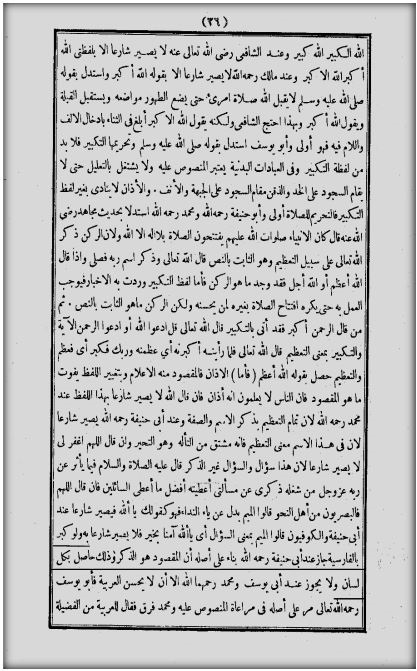 (٣٦)
الله الكبير الله كبير وعند الشافعي رضى الله تعالى عنه لا يصير شارعا الا بلفظتي الله
أكبر الله الاكبر وعند مالك رحمه الله لا يصير شارعا الا بقوله الله أكبر واستدل بقوله
صلى الله عليه وسلم لا يقبل الله صلاة امرئ حتى يضع الطهور مواضعه ويستقبل القبلة
ويقول الله أكبر وبهذا احتج الشافعي ولكنه يقول الله الاكبر أبلغ فى الثناء بادخال الالف
واللام فيه فهو أولى وأبو يوسف استدل بقوله صلى الله عليه وسلم وتحريمها التكبير فلا بد
من لفظة التكبير وفى العبادات البدنية يعتبر المنصوص عليه ولا يشتغل بالتعليل حتى لا
يقام السجود على الخد والذقن مقام السجود على الجبهة والأنف . والأذان لا يتأدى بغير لفظ
التكبير فالتحريم للصلاة أولى وأبو حنيفة رحمه الله ومحمد رحمه الله استدلا بحديث مجاهد رضى
الله عنه قال كان الانبياء صلوات الله عليهم يفتتحون الصلاة بلا اله الا الله ولان الركن ذكر
الله تعالى على سبيل التعظيم وهو الثابت بالنص قال الله تعالى وذكر اسم ربه فصلى واذا قال
الله أعظم أو الله أجل فقد وجد ما هو الركن فأما لفظ التكبير وردت به الاخبار فيوجب
العمل به حتى يكره افتتاح الصلاة بغيره لمن يحسنه ولكن الركن ما هو الثابت بالنص . ثم
من قال الرحمن أكبر فقد أتى بالتكبير قال الله تعالى قل ادعوا الله أو ادعوا الرحمن الآية
والتكبير بمعنى التعظيم قال الله تعالى فلما رأينه أكبرنه أي عظمنه وربك فكبر أى فعظم
والتعظيم حصل بقوله الله أعظم (فأما) الاذان فالمقصود منه الاعلام وبتغيير اللفظ يفوت
ما هو المقصود فان الناس لا يعلمون انه أذان فان قال الله لا يصير شارعا بهذا اللفظ عند
محمد رحمه الله لان تمام التعظيم بذكر الاسم والصفة وعند أبي حنيفة رحمه الله يصير شارعا
لان فى هذا الاسم معنى التعظيم فانه مشتق من التأله وهو التحير وان قال اللهم اغفر لى
لا يصير شارعا لان هذا سؤال والسؤال غير الذكر قال عليه الصلاة والسلام فيما يأثر عن
ربه عز وجل من شغله ذكرى عن مسألتى أعطيته أفضل ما أعطى السائلين فان قال اللهم
فالبصريون من أهل النحو قالوا الميم بدل عن ياء النداء فهو كقولك يا الله فيصير شارعا عند
أبى حنيفة والكوفيون قالوا الميم بمعنى السؤال أى يا الله آمنا بخير فلا يصير شارعا به ولو كبر
بالفارسية جاز عند أبى حنيفة رحمه الله بناء على أصله أن المقصود هو الذكر وذلك حاصل بكل
لسان ولا يجوز عند أبى يوسف ومحمد رحمهما الله الا أن لا يحسن العربية فأبو يوسف
رحمه الله تعالى مر على أصله فى مراعاة المنصوص عليه ومحمد فرق فقال للعربية من الفضيلة